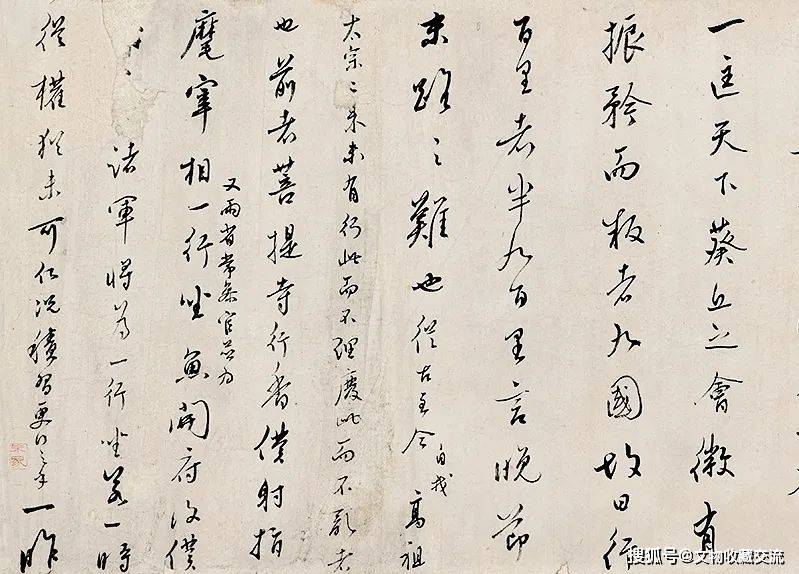 一匡天下葵丘之會微有
振矜而叛者九國故曰行
百里者半九百里言晚節
末路之難也從古至今自我高祖
太宗已來未有行此而不理廢此而不亂者
也前者菩提寺行香僕射指
麾宰相一行坐魚開府及僕
又兩省常參官並為
諸軍將為一行坐若一時
從權猶未可何況積習更行之乎一昨
搜狐号@文物收藏交流